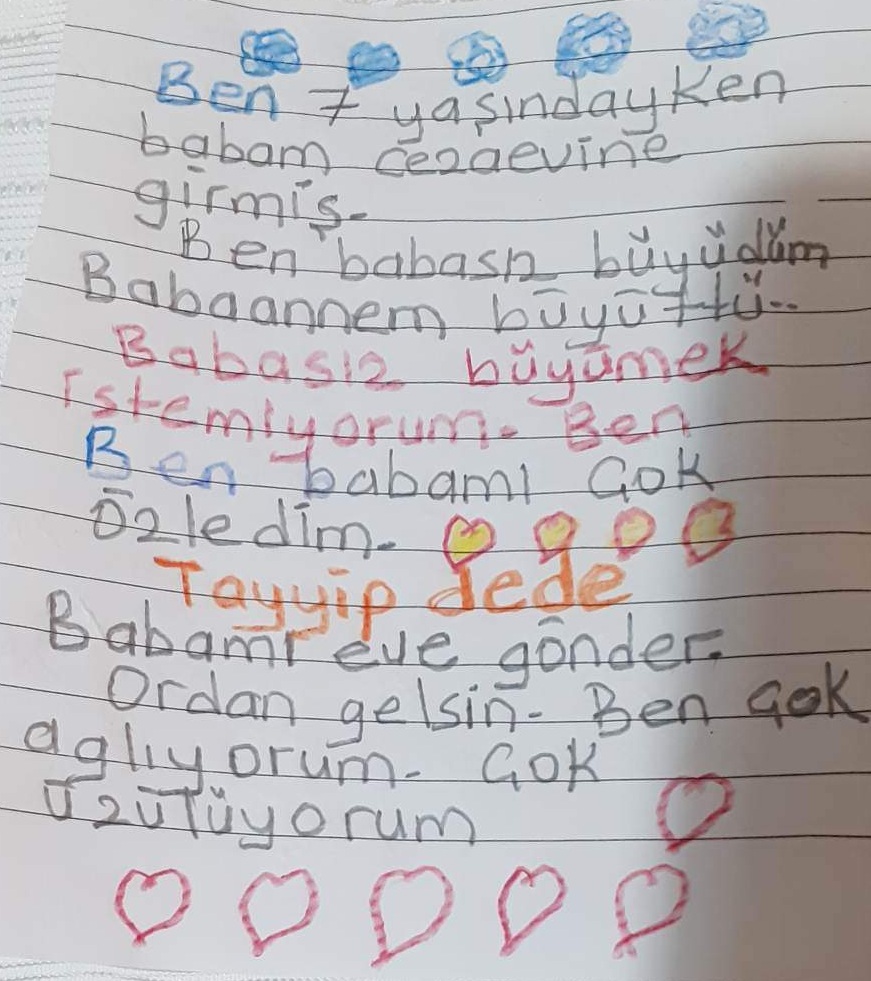 Ben 7 yaşındayken
babam cezaevine
girmiş.
Ben babasız büyüdüm
Babaannem büyüttü..
Babasız büyümek
istemiyorum. Ben
Ben babamı Çok
özledim.
Tayyip dede
Babamı eve gönder.
Ordan gelsin. Ben çok
aglıyorum. Çok
üzülüyorum